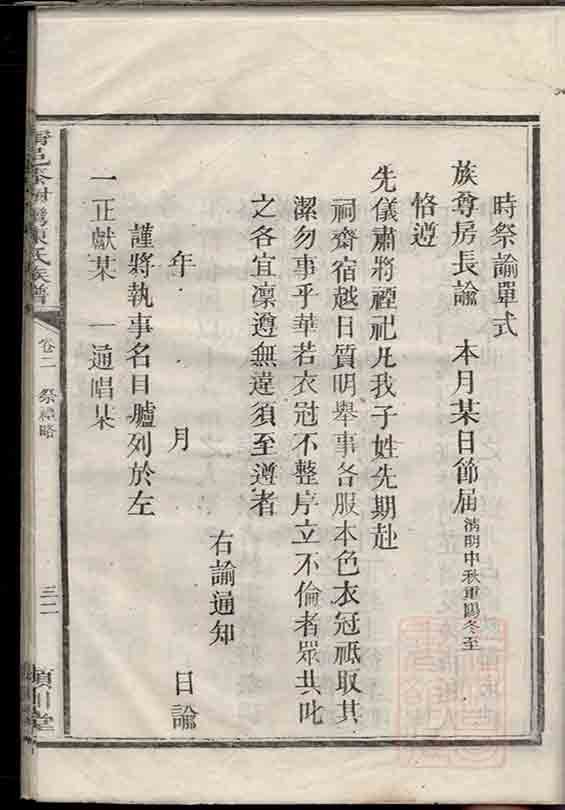 時祭諭單式
族尊房長諭 本月某日節届清明中秋重陽冬至
恪遵
先儀肅將禋祀凡我子姓先期赴
祠齋宿越日質明舉事各服本色衣冠祗取其
潔勿事乎華若衣冠不整序立不倫者眾共叱
之各宜凛遵無違須至遵者
右諭通知
年 月 日諭
謹將執事名目臚列於左
一正獻某 一通唱某
氏族譜
卷二 祭禮略
三二
潁川堂